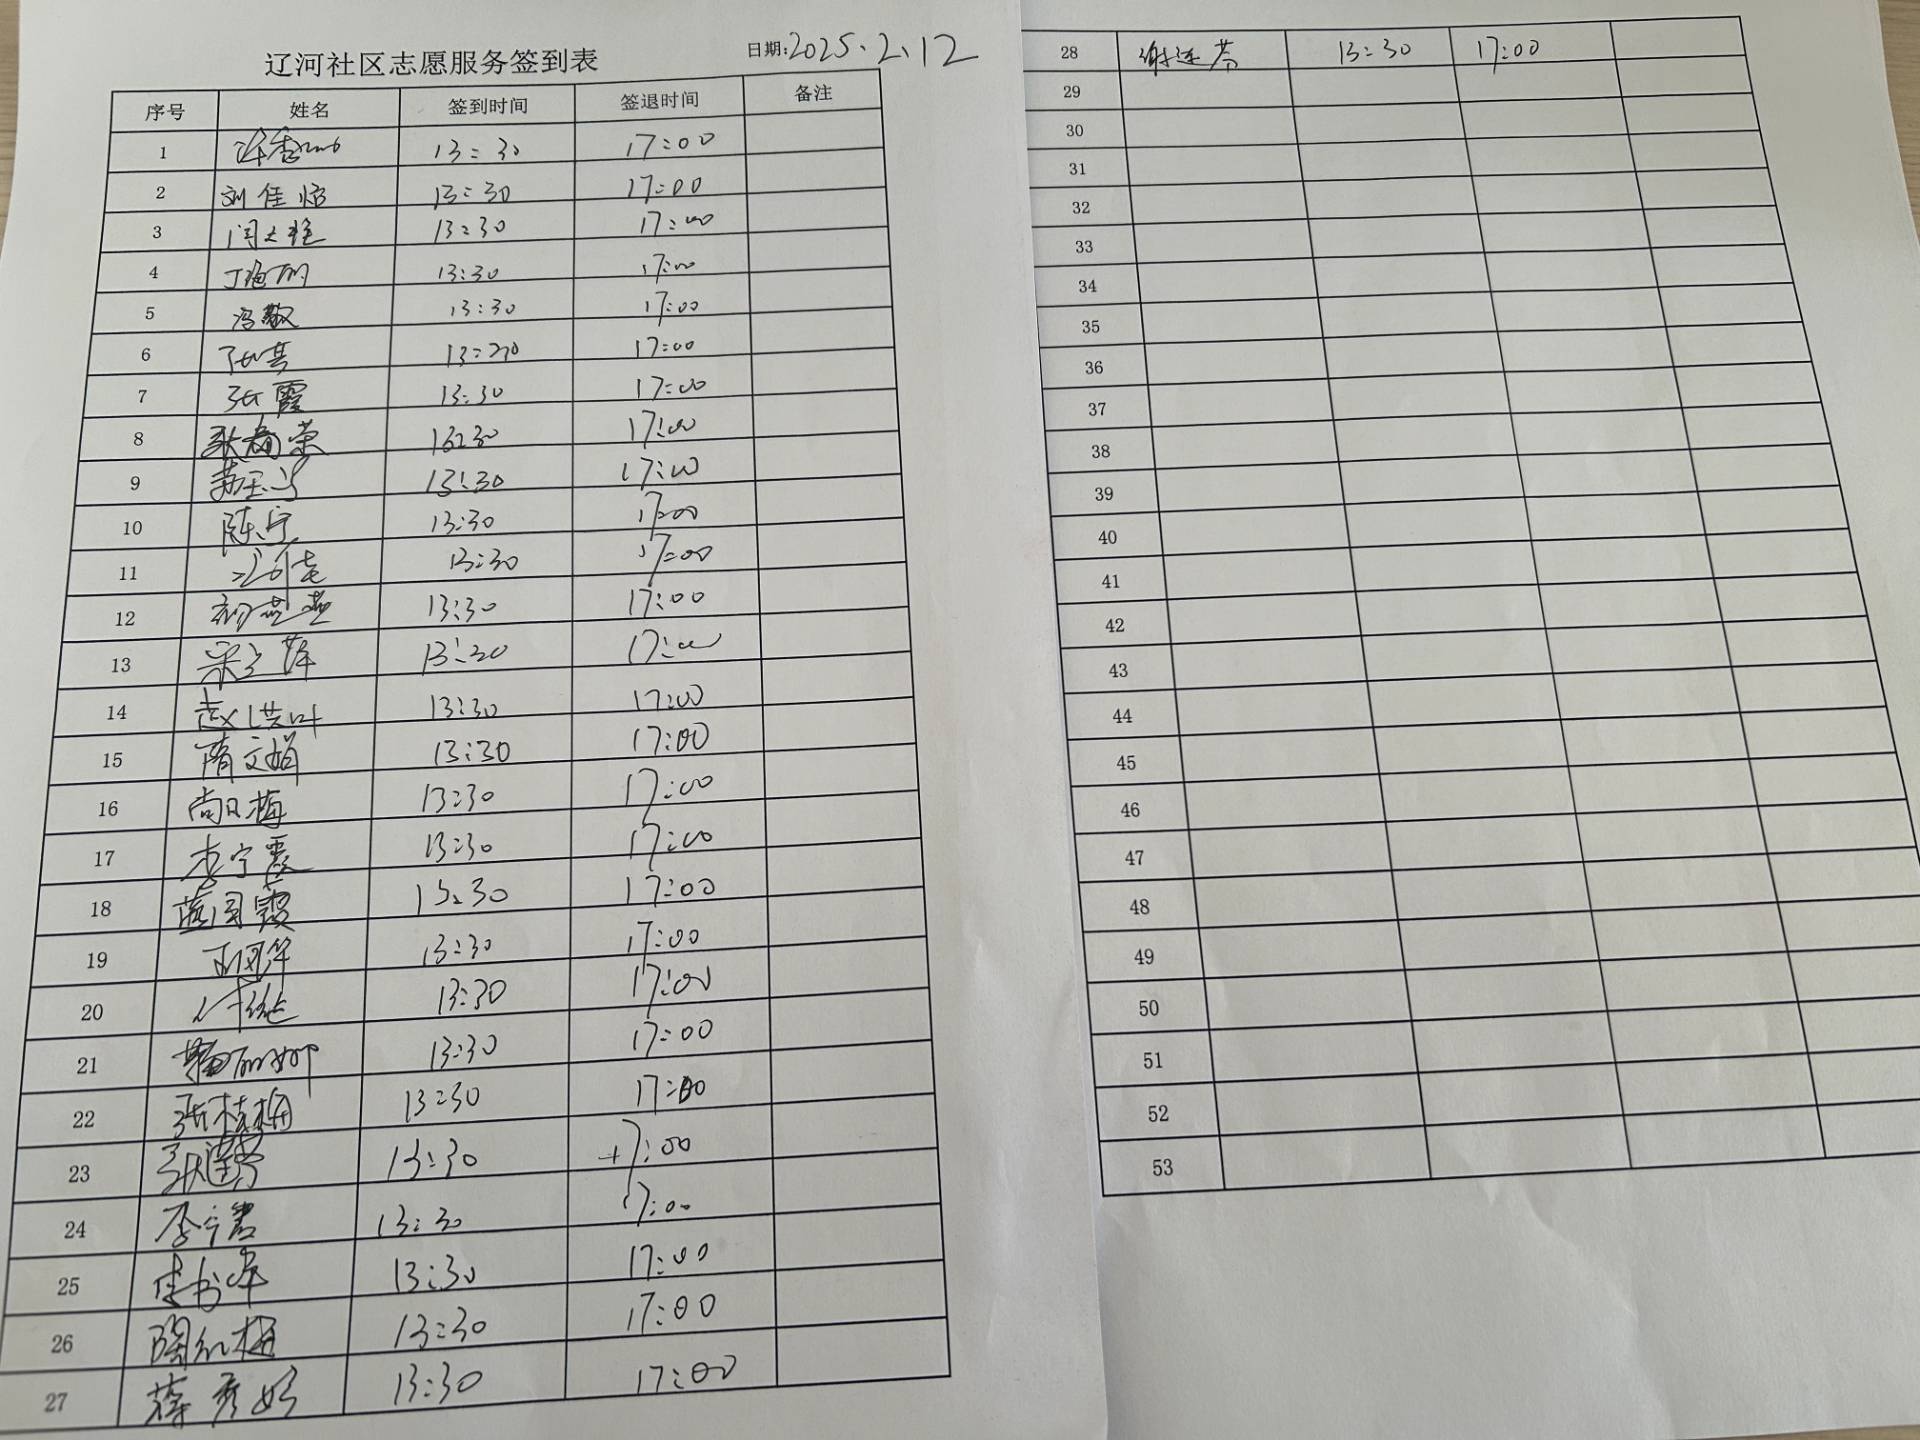 辽河社区志愿服务签到表 日期:2025.2.12
序号 姓名 签到时间 签退时间 备注
1 13:30 17:00
2 刘佳 13:30 17:00
3 闫 13:30 17:00
4 丁艳丽 13:30 17:00
5 冯敬 13:30 17:00
6 13:30 17:00
7 张霞 13:30 17:00
8 荣 16:30 17:00
9 13:30 17:00
10 陈宁 13:30 17:00
11 13:30 17:00
12 13:30 17:00
13 宋 萍 13:30 17:00
14 赵洪叶 13:30 17:00
15 隋文娟 13:30 17:00
16 尚日梅 13:30 17:00
17 李宁霞 13:30 17:00
18 霞 13:30 17:00
19 13:30 17:00
20 13:30 17:00
21 丽娜 13:30 17:00
22 张桂梅 13:30 17:00
23 13:30 17:00
24 李 13:30 17:00
25 13:30 17:00
26 陶红梅 13:30 17:00
27 薛彦好 13:30 17:00
28 谢连芳 13:30 17:00
29
30
31
32
33
34
35
36
37
38
39
40
41
42
43
44
45
46
47
48
49
50
51
52
53